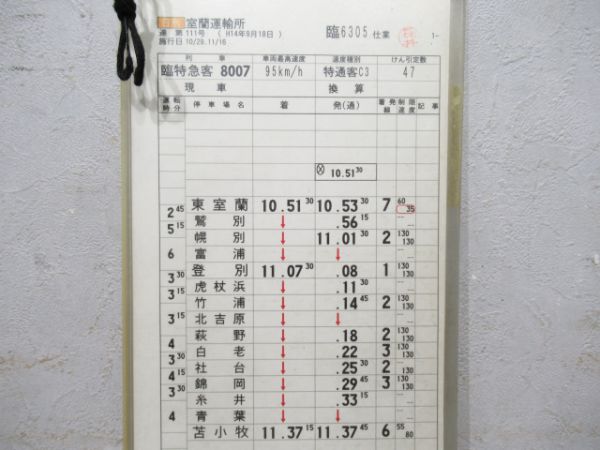 室蘭運輸所 臨6305仕業
達 第111号 ( H14年9月18日 ) 1-
施行日 10/26.11/16
列車 車両最高速度 速度種別 けん引定数
臨特急客 8007 95km/h 特通客C3 47
現車 換算
運転時分 停車場名 着 発(通) 着発線 制限速度 記事
10.51 30
東室蘭 10.51 30 10.53 30 7 60 35
2 45
鷲別 ↓ .56 15
5 15
幌別 ↓ 11.01 30 2 130 130
富浦 ↓ ↓
6
登別 11.07 30 .08 1 130 130
3 30
虎杖浜 ↓ .11 30
3 15
竹浦 ↓ .14 45 2 130 130
北吉原 ↓ ↓
3 15
萩野 ↓ .18 2 130 130
4
白老 ↓ .22 3 130 130
3 30
社台 ↓ .25 30 2 130 130
4 15
錦岡 ↓ .29 45 3 130 130
3 30
糸井 ↓ .33 15
青葉 ↓ ↓
4
苫小牧 11.37 15 11.37 45 6 55 80